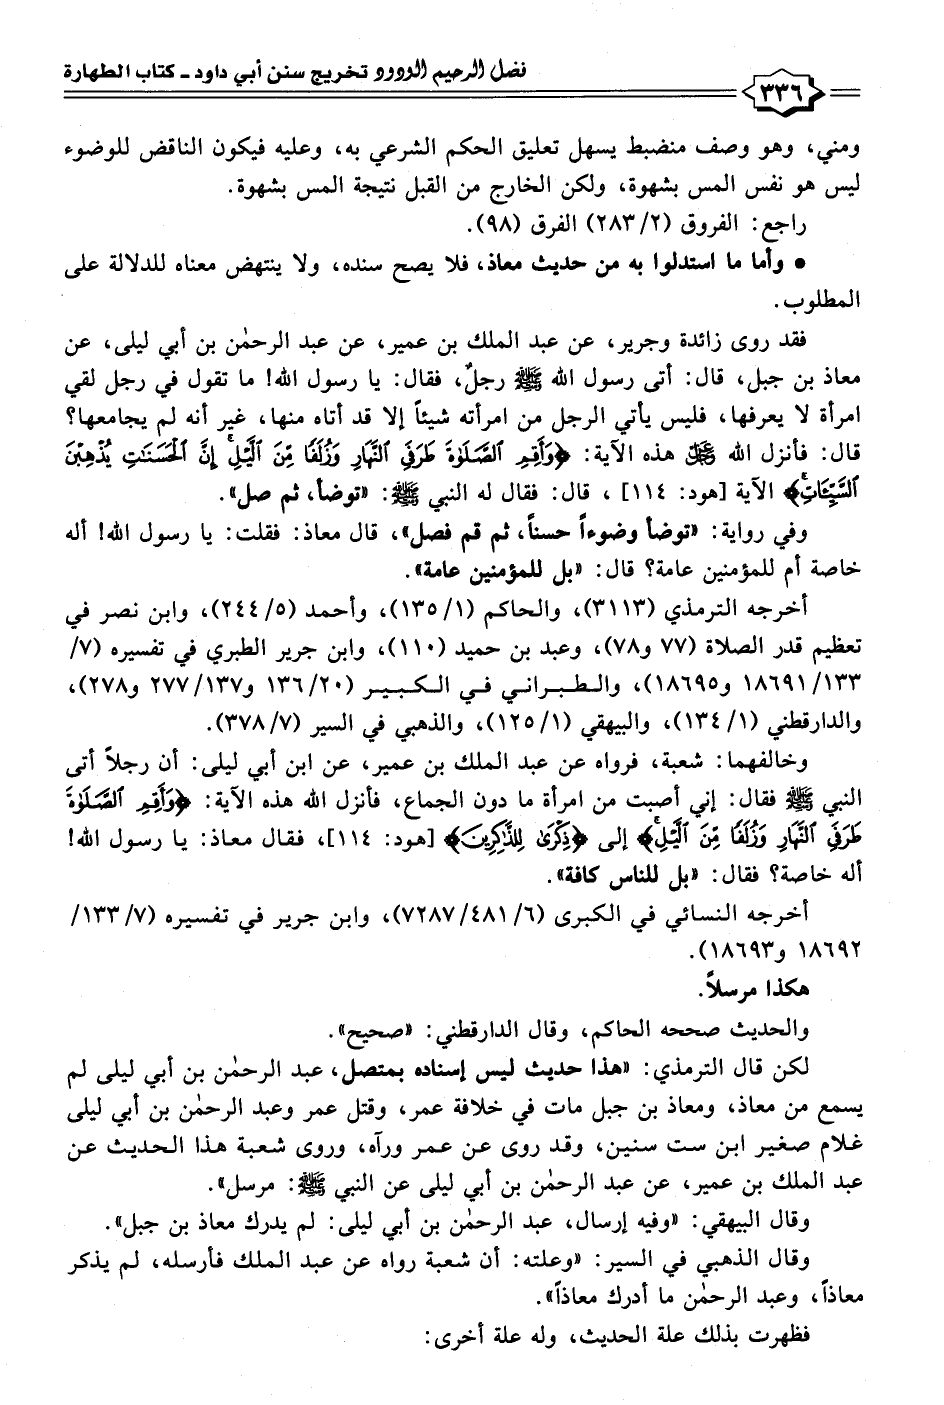 فضل الرحيم الودود تخريج سنن أبي داود - كتاب الطهارة
٣٣٦
ومني، وهو وصف منضبط يسهل تعليق الحكم الشرعي به، وعليه فيكون الناقض للوضوء
ليس هو نفس المس بشهوة، ولكن الخارج من القبل نتيجة المس بشهوة.
راجع: الفروق (٢/ ٢٨٣) الفرق (٩٨).
• وأما ما استدلوا به من حديث معاذ، فلا يصح سنده، ولا ينتهض معناه للدلالة على
المطلوب.
فقد روى زائدة وجرير، عن عبد الملك بن عمير، عن عبد الرحمٰن بن أبي ليلى، عن
معاذ بن جبل، قال: أتى رسول الله ﷺ رجلٌ، فقال: يا رسول الله! ما تقول في رجل لقي
امرأة لا يعرفها، فليس يأتي الرجل من امرأته شيئاً إلا قد أتاه منها، غير أنه لم يجامعها؟
قال: فأنزل الله ﷻ هذه الآية: ﴿وَأَقِمِ ٱلصَّلَوٰةَ طَرَفَىِ ٱلنَّهَارِ وَزُلَفًا مِّنَ ٱلَّيْلِۚ إِنَّ ٱلْحَسَنَـٰتِ يُذْهِبْنَ
ٱلسَّيِّـَٔاتِۚ﴾ الآية [هود: ١١٤]، قال: فقال له النبي ﷺ: «توضأ، ثم صل».
وفي رواية: «توضأ وضوءاً حسناً، ثم قم فصل»، قال معاذ: فقلت: يا رسول الله! أله
خاصة أم للمؤمنين عامة؟ قال: «بل للمؤمنين عامة».
أخرجه الترمذي (٣١١٣)، والحاكم (١/ ١٣٥)، وأحمد (٥/ ٢٤٤)، وابن نصر في
تعظيم قدر الصلاة (٧٧ و٧٨)، وعبد بن حميد (١١٠)، وابن جرير الطبري في تفسيره (٧/
١٣٣/ ١٨٦٩١ و١٨٦٩٥)، والطبراني في الكبير (٢٠/ ١٣٦ و١٣٧/ ٢٧٧ و٢٧٨)،
والدارقطني (١/ ١٣٤)، والبيهقي (١/ ١٢٥)، والذهبي في السير (٧/ ٣٧٨).
وخالفهما: شعبة، فرواه عن عبد الملك بن عمير، عن ابن أبي ليلى: أن رجلاً أتى
النبي ﷺ فقال: إني أصبت من امرأة ما دون الجماع، فأنزل الله هذه الآية: ﴿وَأَقِمِ ٱلصَّلَوٰةَ
طَرَفَىِ ٱلنَّهَارِ وَزُلَفًا مِّنَ ٱلَّيْلِۚ﴾ إلى ﴿ذِكْرَىٰ لِلذَّٰكِرِينَ﴾ [هود: ١١٤]، فقال معاذ: يا رسول الله!
أله خاصة؟ فقال: «بل للناس كافة».
أخرجه النسائي في الكبرى (٦/ ٤٨١/ ٧٢٨٧)، وابن جرير في تفسيره (٧/ ١٣٣/
١٨٦٩٢ و١٨٦٩٣).
هكذا مرسلاً.
والحديث صححه الحاكم، وقال الدارقطني: «صحيح».
لكن قال الترمذي: «هذا حديث ليس إسناده بمتصل، عبد الرحمٰن بن أبي ليلى لم
يسمع من معاذ، ومعاذ بن جبل مات في خلافة عمر، وقتل عمر وعبد الرحمٰن بن أبي ليلى
غلام صغير ابن ست سنين، وقد روى عن عمر ورآه، وروى شعبة هذا الحديث عن
عبد الملك بن عمير، عن عبد الرحمٰن بن أبي ليلى عن النبي ﷺ: مرسل».
وقال البيهقي: «وفيه إرسال، عبد الرحمٰن بن أبي ليلى: لم يدرك معاذ بن جبل».
وقال الذهبي في السير: «وعلته: أن شعبة رواه عن عبد الملك فأرسله، لم يذكر
معاذاً، وعبد الرحمٰن ما أدرك معاذاً».
فظهرت بذلك علة الحديث، وله علة أخرى: